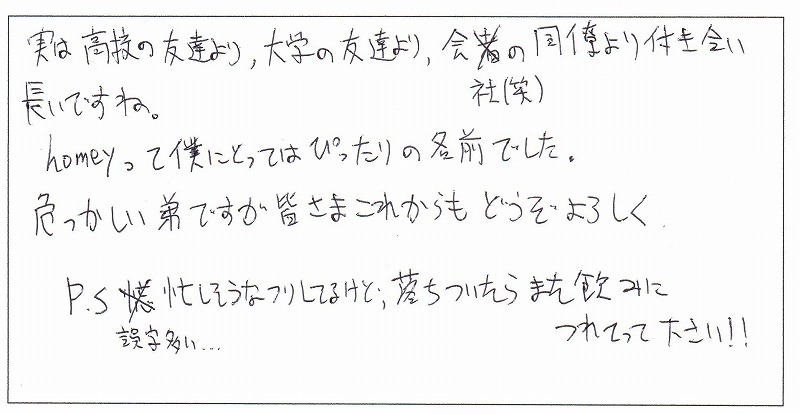 実は高校の友達より,大学の友達より,会者の同僚より付き合い
社(笑)
長いですね。
homeyって僕にとってはぴったりの名前でした。
危っかしい弟ですが皆さまこれからもどうぞよろしく
P.S 忙しそうなフリしてるけど,落ちついたらまた飲みに
誤字多い...
つれてって下さい!!